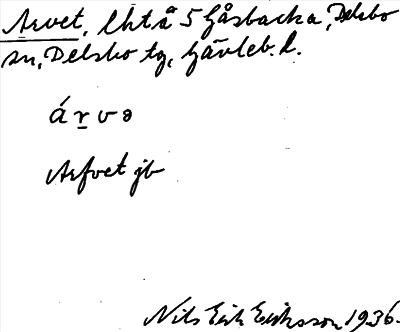 Arvet, lht å 5 Gåsbacka, Delsbo
sn, Delsbo tg, Gävleb. l.
árvə
Arfvet jb
Nils Erik Eriksson 1936.